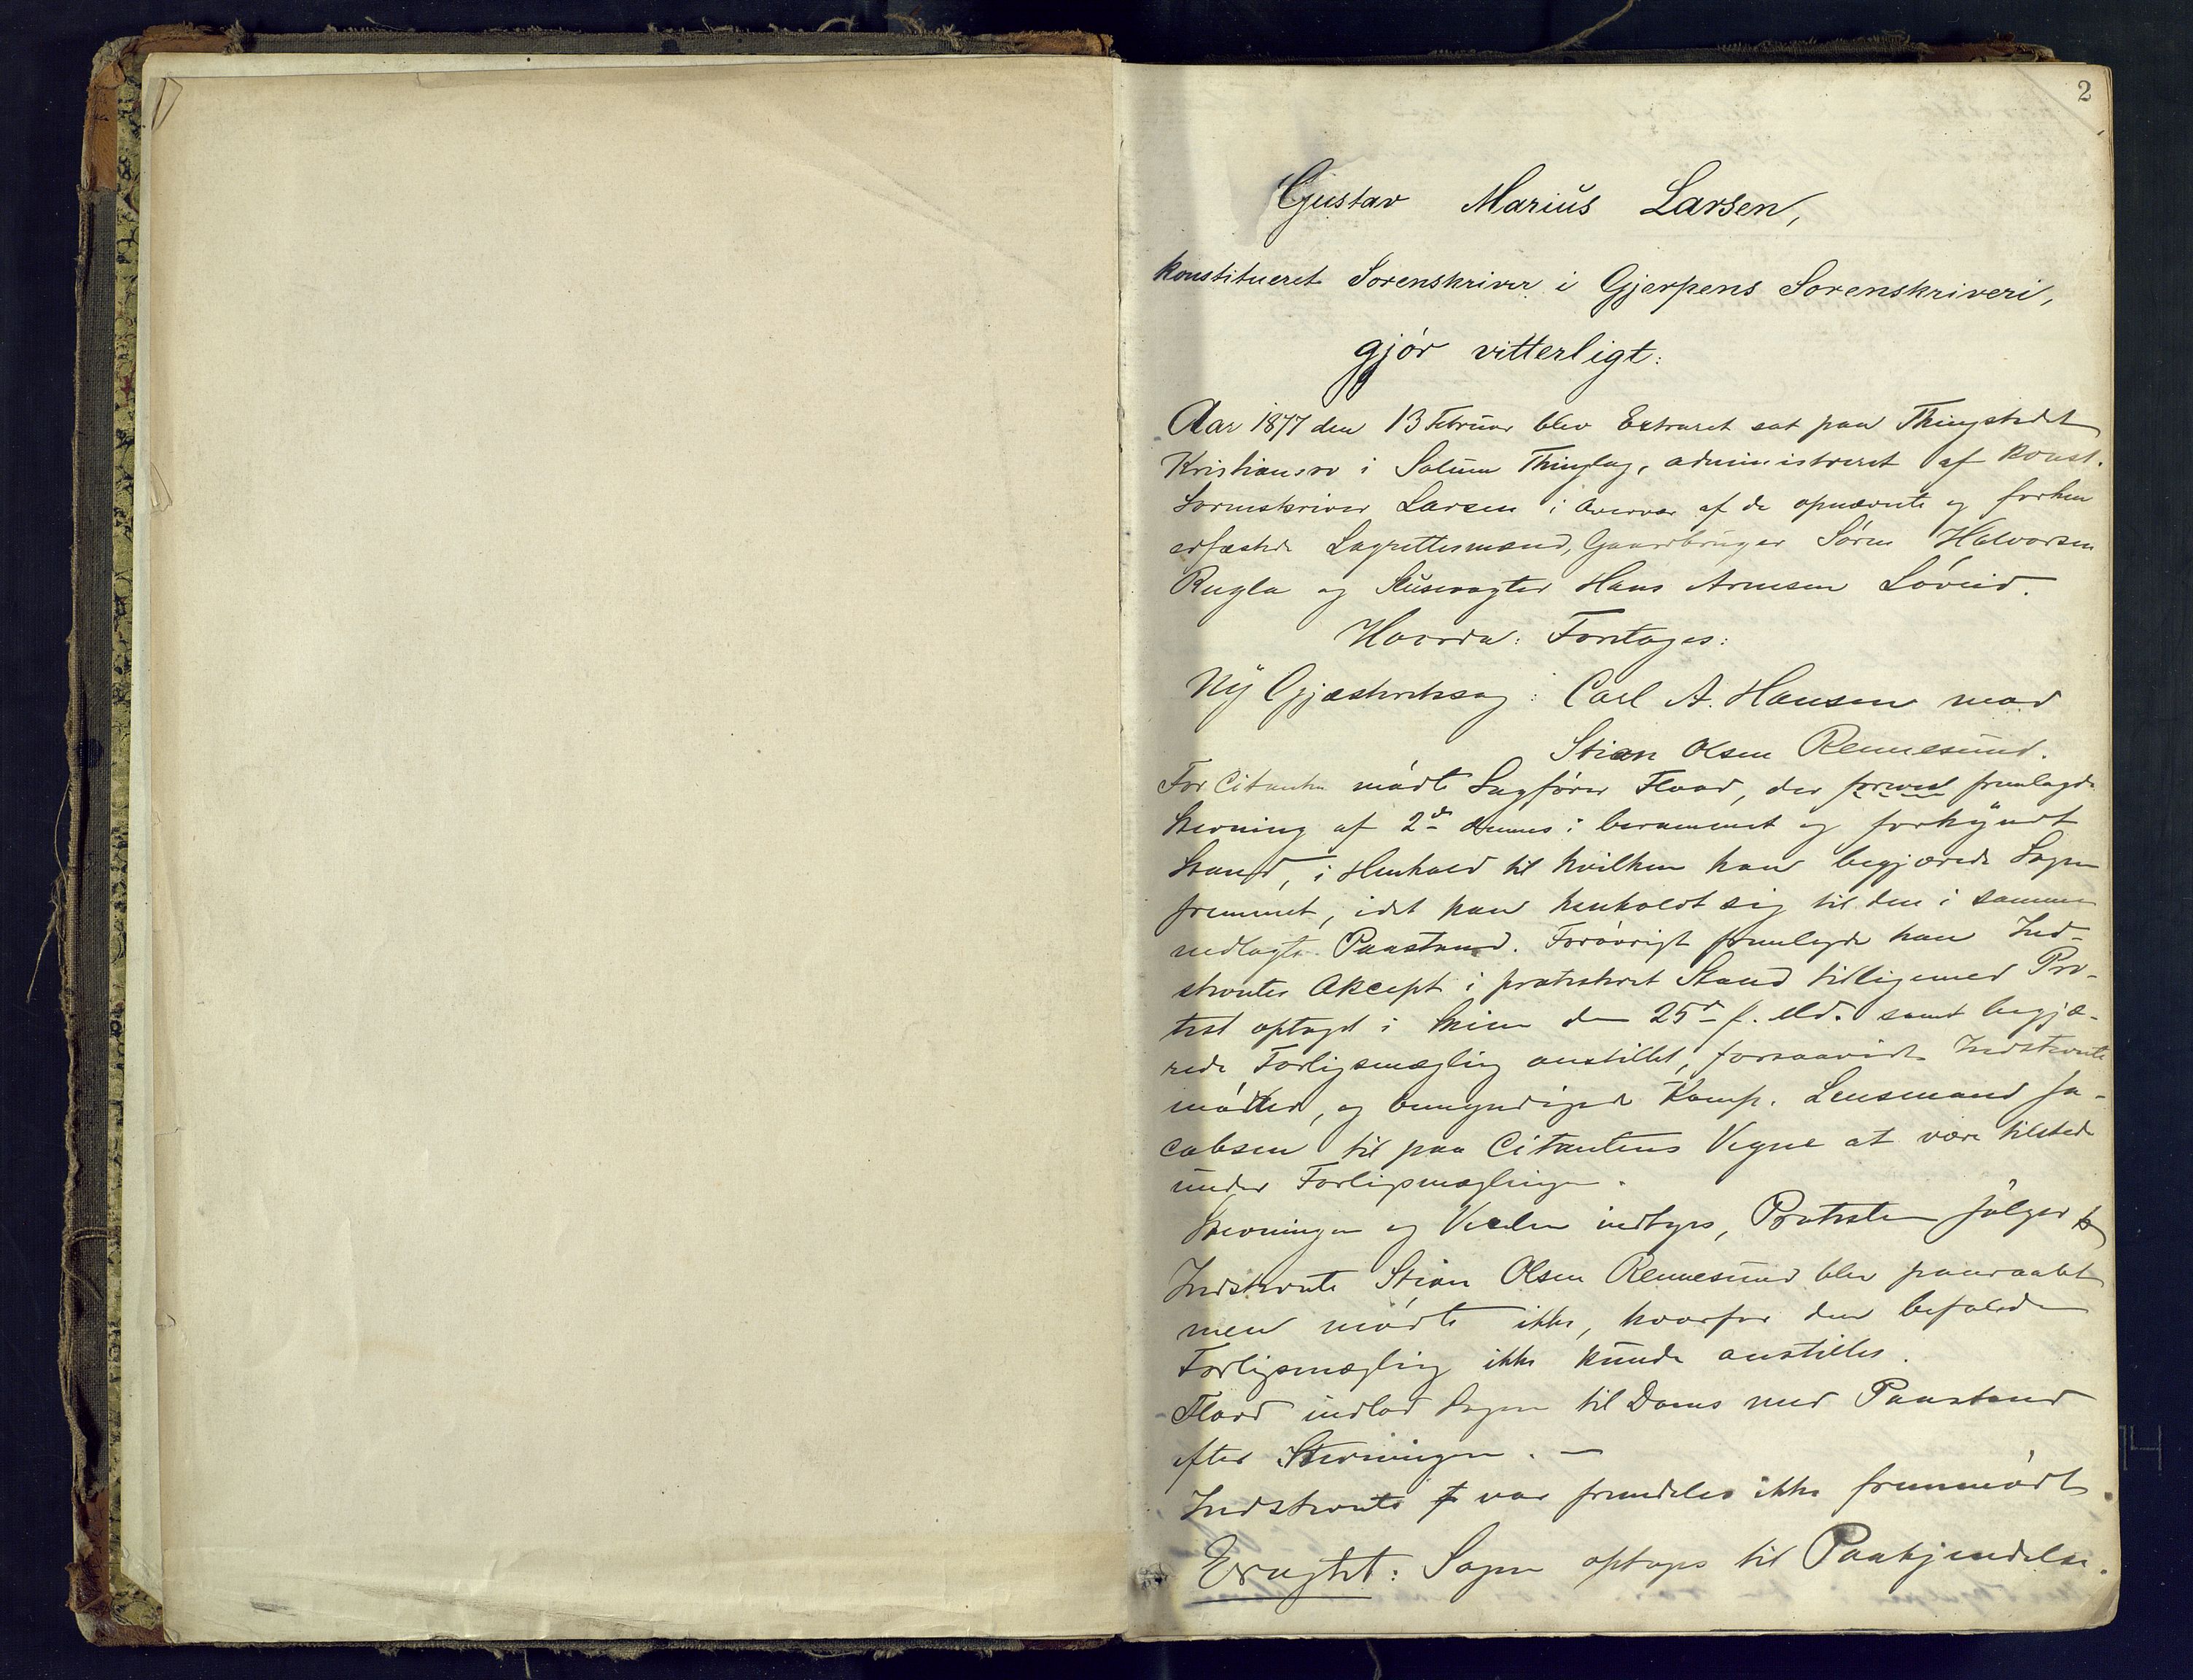 2
Gustav Marius Larsen,
konstitueret Sorenskriver i Gjerpens Sorenskriveri,
gjór vitterligt:
Aar 1877 den 13 Februar blev Extraret sat paa Thingstedet
Kristiansro i Solum Thinglag, administreret af konst.
Sorenskriver Larsen i Overvær af de opnævnte og forhen
edfæstede Lagrettesmænd, Gaardbruger Sóren Halvorsen
Rugla og Slusevogter Hans Arnesen Lóveid.
Hvorda: Foretages:
Ny Gjæsteretssag: Carl A. Hansen mod
Stian Olsen Rennesund.
For Citanten módte Sagfórer Flood, der fremlagde
Stevning af 2den dennes i berammet og forkyndt
Stand, i Henhold til hvilken han begjærede Sagen
fremmet, idet han henholdt sig til den i samme
nedlagte Paastand. Foróvrigt fremlagde han Ind-
stevntes Akcept i protesteret Stand tilligemed Pro-
test optaget i Skien den 25de f. Md. samt begjæ-
rede Forligsmægling anstillet, forsaavidt Indstevnte
módte, og bemyndigede Lensmand Ja-
cobsen til paa Citantens Vegne at være tilstede
under Forligsmæglingen.
Stevningen og Vexlen indtages, Protesten fólger
Indstevnte Stian Olsen Rennesund blev paaraabt
men módte ikke, hvorfor den befalede
Forligsmægling ikke kunde anstilles.
Flood indlod Sagen til Doms med Paastand
efter Stevningen. —
Indstevnte var fremdeles ikke fremmódt.
Eragtet: Sagen optages til Paakjendelse.